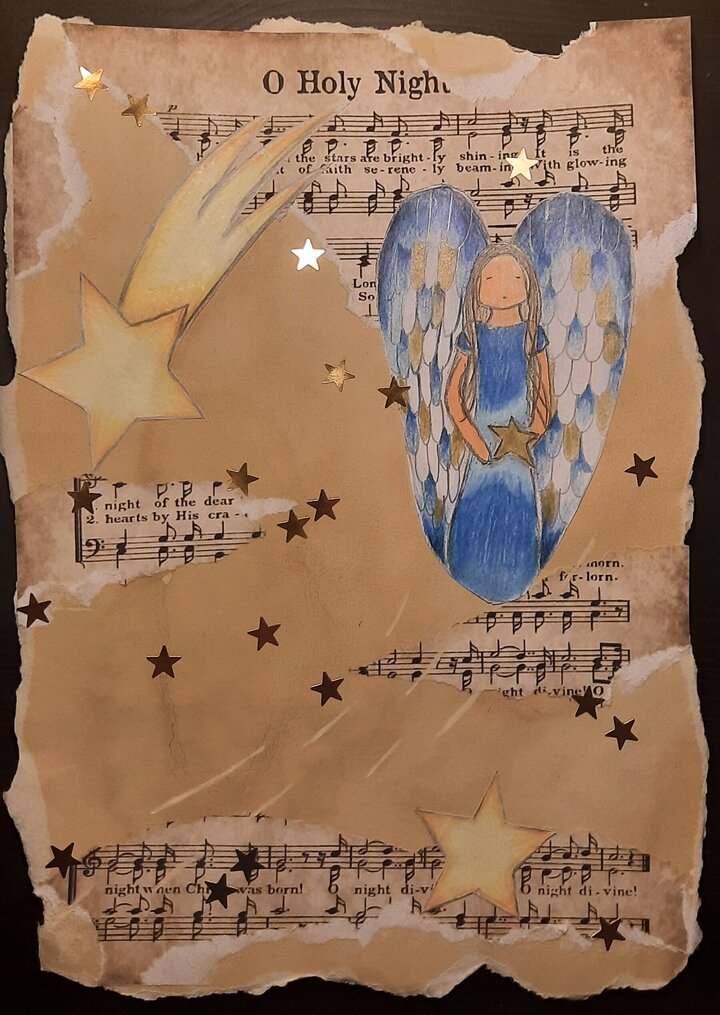 O Holy Night
the stars are bright - ly shin - ing It is the
of faith se - rene - ly beam - in With glow - ing
Lon
So
1. night of the dear
2. hearts by His cra -
morn.
for - lorn.
ght di - vine! O
night when Ch was born! O night di - vi O night di - vine!